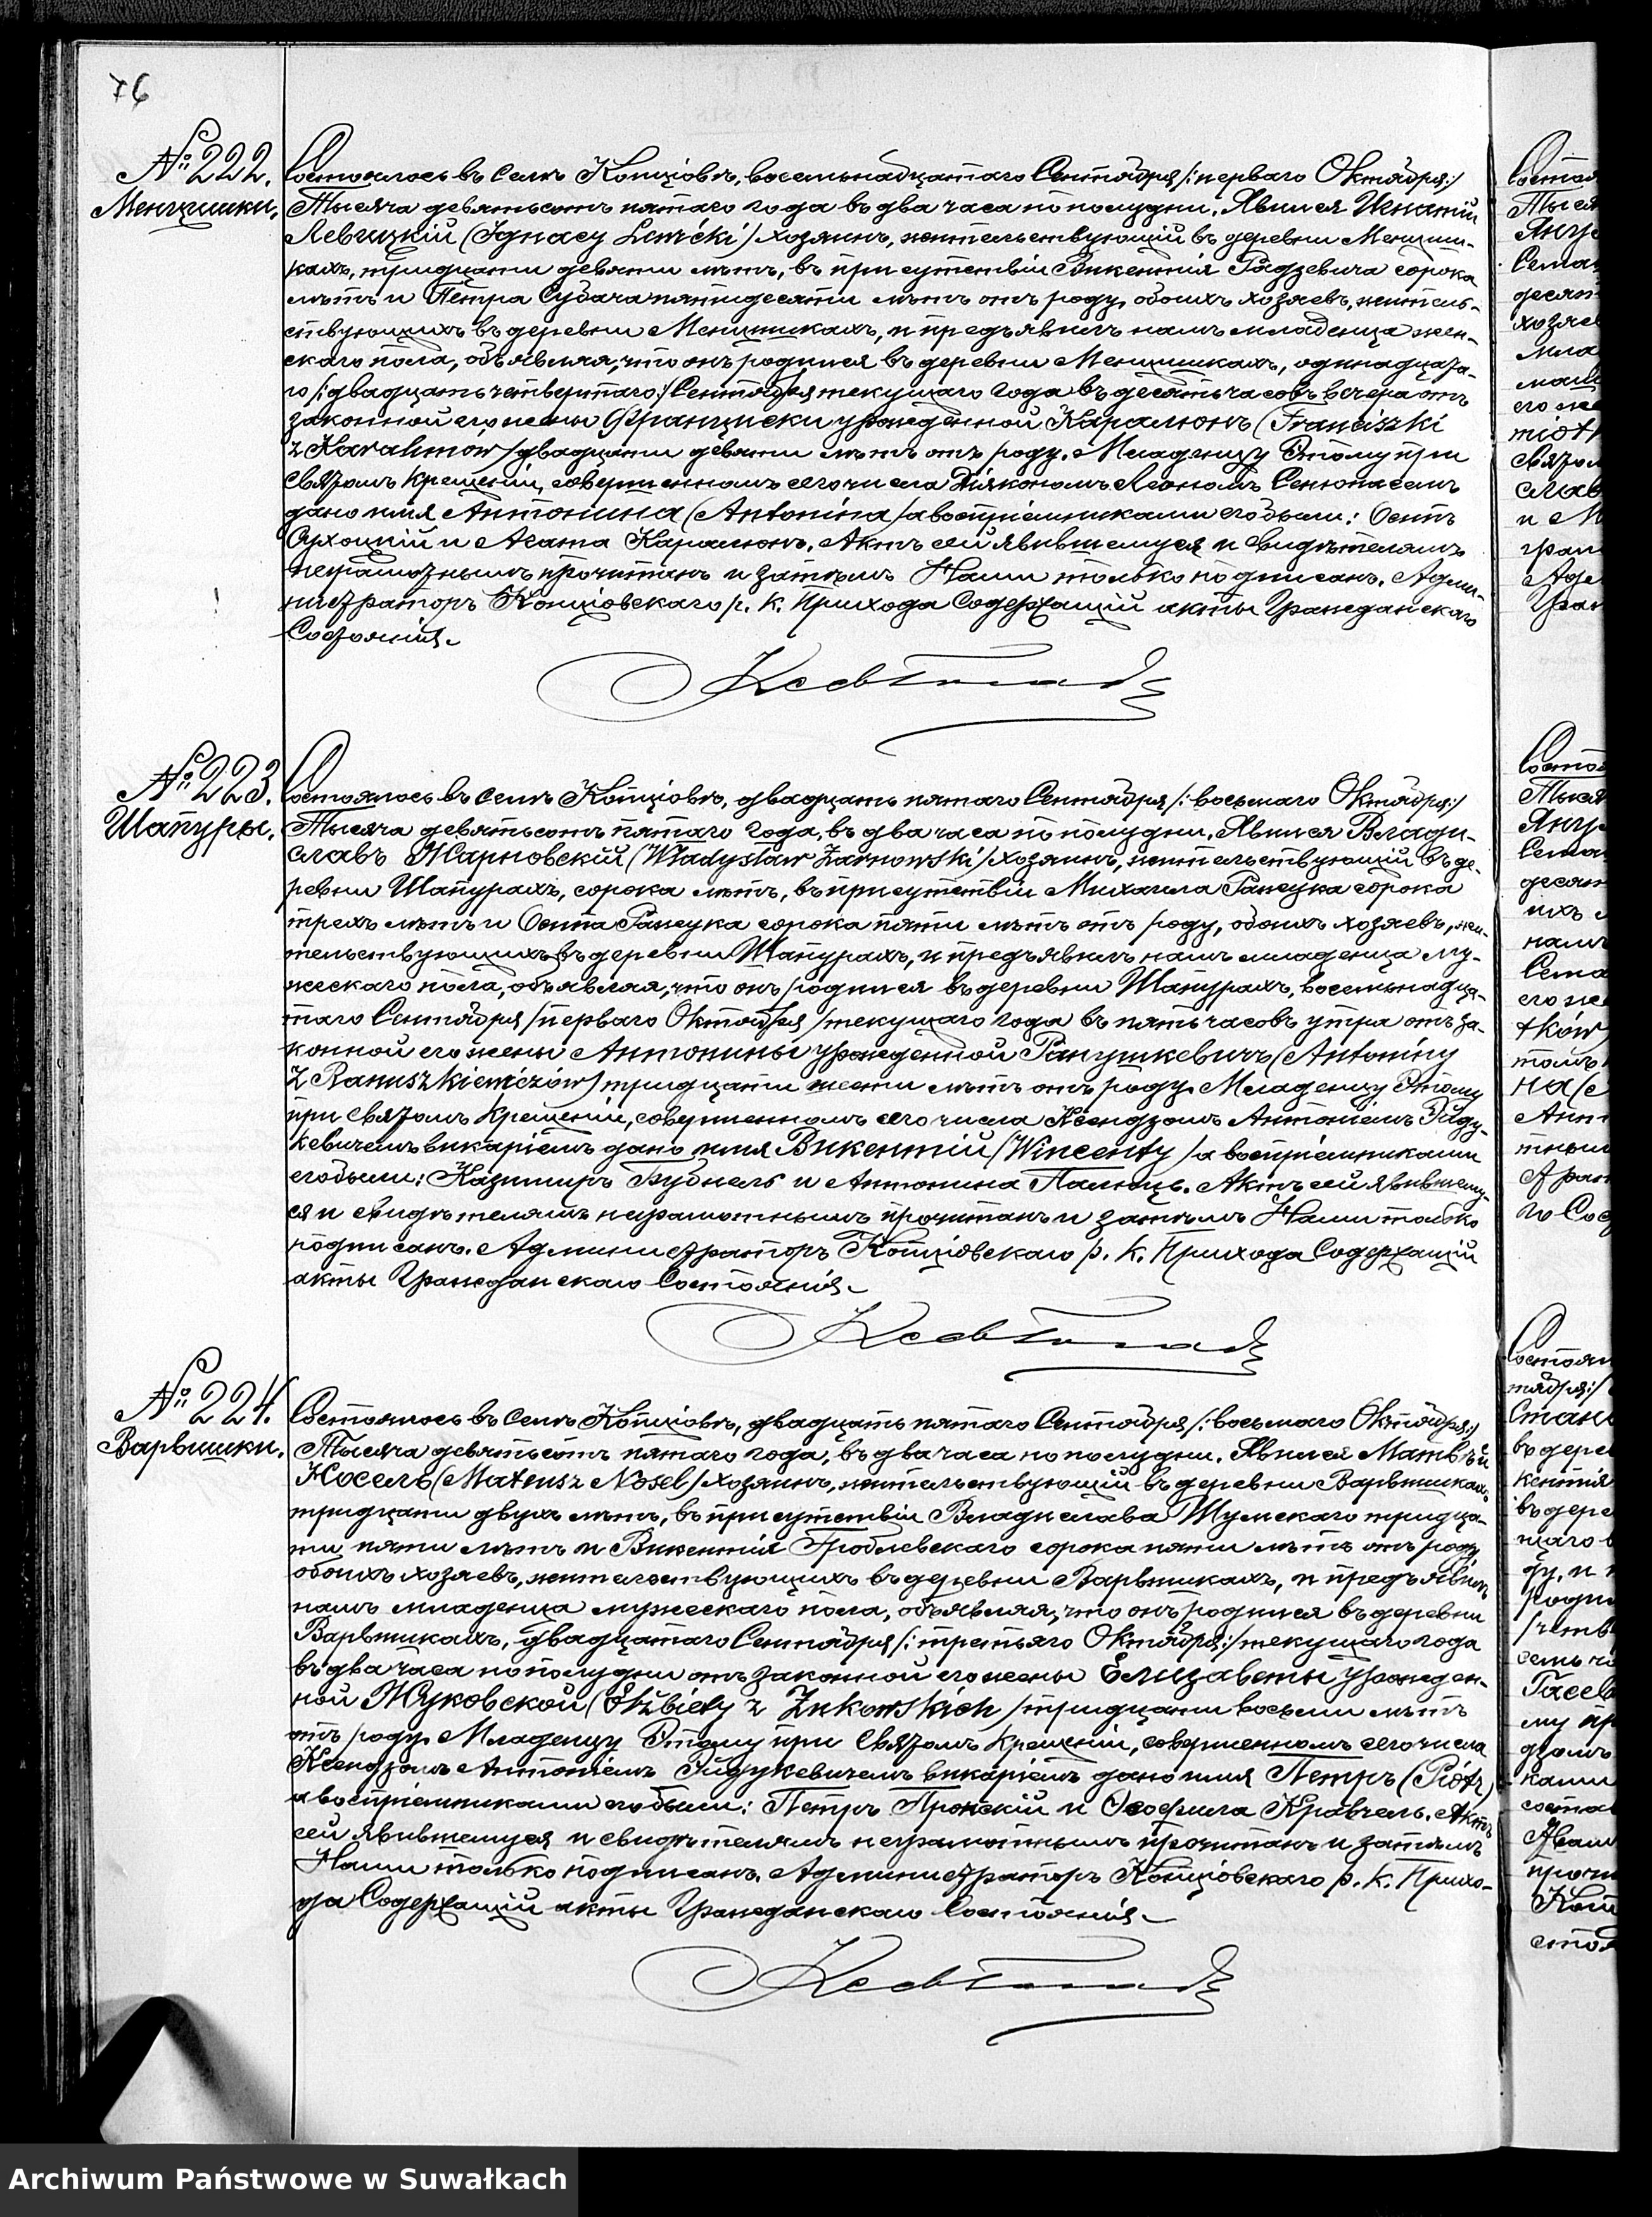 76
№ 222.
Менцишки.
Состоялось въ селѣ Копціовѣ, восемнадцатаго Сентября /:перваго Октября:/
Тысяча девятьсотъ пятаго года въ два часа по полудни. Явился Игнатій
Левицкій (Ignacy Lewicki) хозяинъ, жительствующій въ деревни Менциш-
кахъ, тридцати девяти лѣтъ, въ присутствіи Викентія Радзевича сорока
лѣтъ и Петра Субача пятидесяти лѣтъ отъ роду, обоихъ хозяевъ, житель-
ствующихъ въ деревни Менцишкахъ, и предъявилъ намъ младенца жен-
скаго пола, объявляя, что онъ родился въ деревни Менцишкахъ, одинадцата-
го /:двадцать четвертаго:/ Сентября текущаго года въ десять часовъ вечера отъ
законной его жены Францишки урожденной Каралюнъ (Franciszki
z Karalunow) двадцати девяти лѣтъ отъ роду. Младенцу Этому при
Святомъ крещеніи, совершенномъ сего числа Діякономъ Леономъ
дано имя Антонина (Antonina) а воспріемниками его были: Осипъ
Сухоцкій и Агата Каралюнъ. Актъ сей явившемуся и свидѣтелямъ
неграмотнымъ прочитанъ и затѣмъ Нами только подписанъ. Адми-
нистраторъ Копціовскаго р. к. Прихода Содержащій акты Гражданскаго
Состоянія.
№ 223.
Шапуры.
Состоялось въ селѣ Копціовѣ, двадцать пятаго Сентября /:восьмаго Октября:/
Тысяча девятьсотъ пятаго года, въ два часа по полудни. Явился Влади-
славъ Жарновскій (Władysław Żarnowski) хозяинъ, жительствующій въ де-
ревни Шапурахъ, сорока лѣтъ, въ присутствіи Михаила Ранцука сорока
трехъ лѣтъ и Осипа Ранцука сорока пяти лѣтъ отъ роду, обоихъ хозяевъ, жи-
тельствующихъ въ деревни Шапурахъ, и предъявилъ намъ младенца му-
жескаго пола, объявляя, что онъ родился въ деревни Шапурахъ, восемнадца-
таго Сентября /перваго Октября/ текущаго года въ пять часовъ утра отъ за-
конной его жены Антонины урожденной Ранушкевичъ (Antoniny
z Ranuszkiewiczów) тридцати шести лѣтъ отъ роду. Младенцу Этому
при Святомъ Крещеніи, совершенномъ сего числа Ксендзомъ Антоніемъ Риду-
кевичемъ викаріемъ дано имя Викентій (Wincenty) а воспріемниками
его были: Казимиръ Буднель и Антонина Палюнь. Актъ сей явившему-
ся и свидѣтелямъ неграмотнымъ прочитанъ и затѣмъ Нами только
подписанъ. Администраторъ Копціовскаго р. к. Прихода Содержащій
акты Гражданскаго Состоянія.
№ 224.
Варвишки.
Состоялось въ селѣ Копціовѣ, двадцать пятаго Сентября /:восьмаго Октября:/
Тысяча девятьсотъ пятаго года, въ два часа по полудни. Явился Матвѣй
Носель (Mateusz Nosel) хозяинъ, жительствующій въ деревни Варвишкахъ
тридцати двухъ лѣтъ, въ присутствіи Владислава Шумскаго тридца-
ти пяти лѣтъ и Викентія Гроблевскаго сорока пяти лѣтъ отъ роду
обоихъ хозяевъ, жительствующихъ въ деревни Варвишкахъ, и предъявилъ
намъ младенца мужескаго пола, объявляя, что онъ родился въ деревни
Варвишкахъ, двадцатаго Сентября /:третьяго Октября:/ текущаго года
въ два часа по полудни отъ законной его жены Елизаветы урожден-
ной Жуковской (Elżbiety z Żukowskich) тридцати восьми лѣтъ
отъ роду. Младенцу Этому при Святомъ крещеніи, совершенномъ сего числа
Ксендзомъ Антоніемъ Ридукевичемъ викаріемъ дано имя Петръ (Piotr)
а воспріемниками его были: Петръ Пронскій и Ѳеофила Кравчель. Актъ
сей явившемуся и свидѣтелямъ неграмотнымъ прочитанъ и затѣмъ
Нами только подписанъ. Администраторъ Копціовскаго р. к. Прихо-
да Содержащій акты Гражданскаго Состоянія.
Archiwum Państwowe w Suwałkach